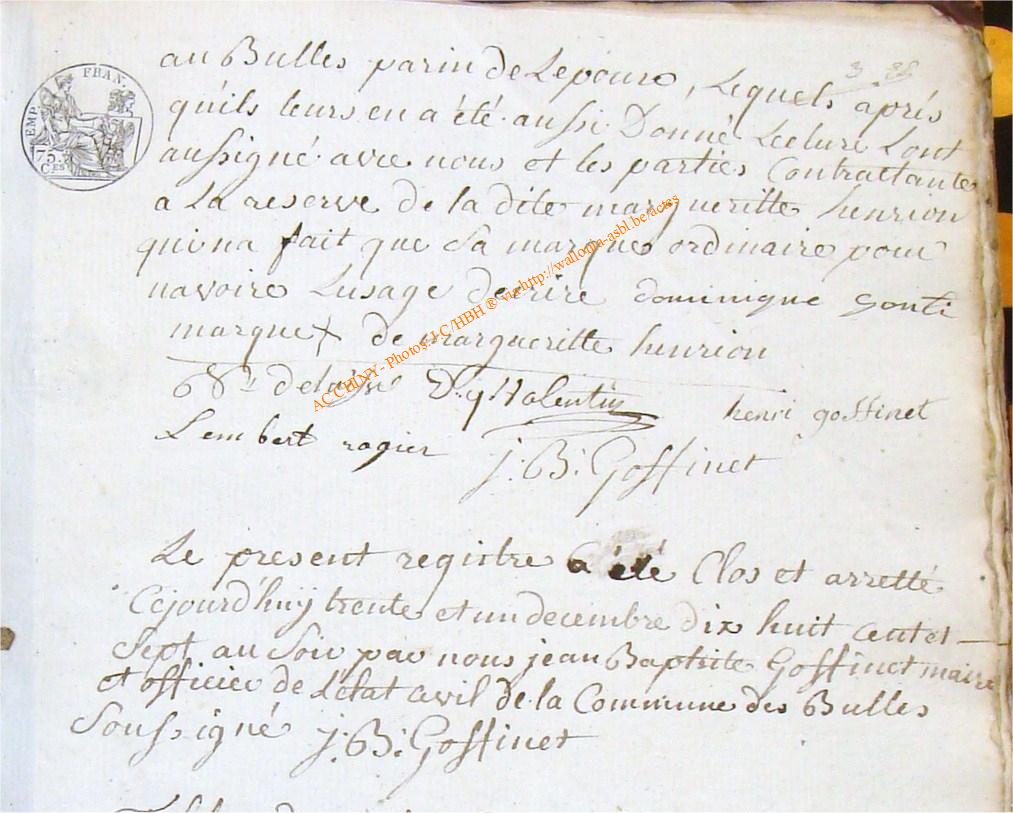 3 35
au Bulles parin de Lepoux, Lequels aprés
EMP. FRAN.
75 Ces
qu'ils leurs en a été aussi Donné Lecture Lont
aussigné avec nous et les parties Contrattante
a La reserve de la dite margueritte henrion
qui na fait que Sa marque ordinaire pour
navoire Lusage decrire dominique gonti
marque x de margueritte henrion
Valentin
henri goffinet
Lembert rogier
j: B: Goffinet
Le present registre a été Clos et arretté
Cejourd'huij trente et un decembre dix huit cent et
Sept au Soir par nous jean Baptiste Goffinet maire
et officier de Létat civil de la Commune des Bulles
Soussigné j: B: Goffinet
AC CHINY - Photos J-C/HBH ® via http://wallonia-asbl.be/actes